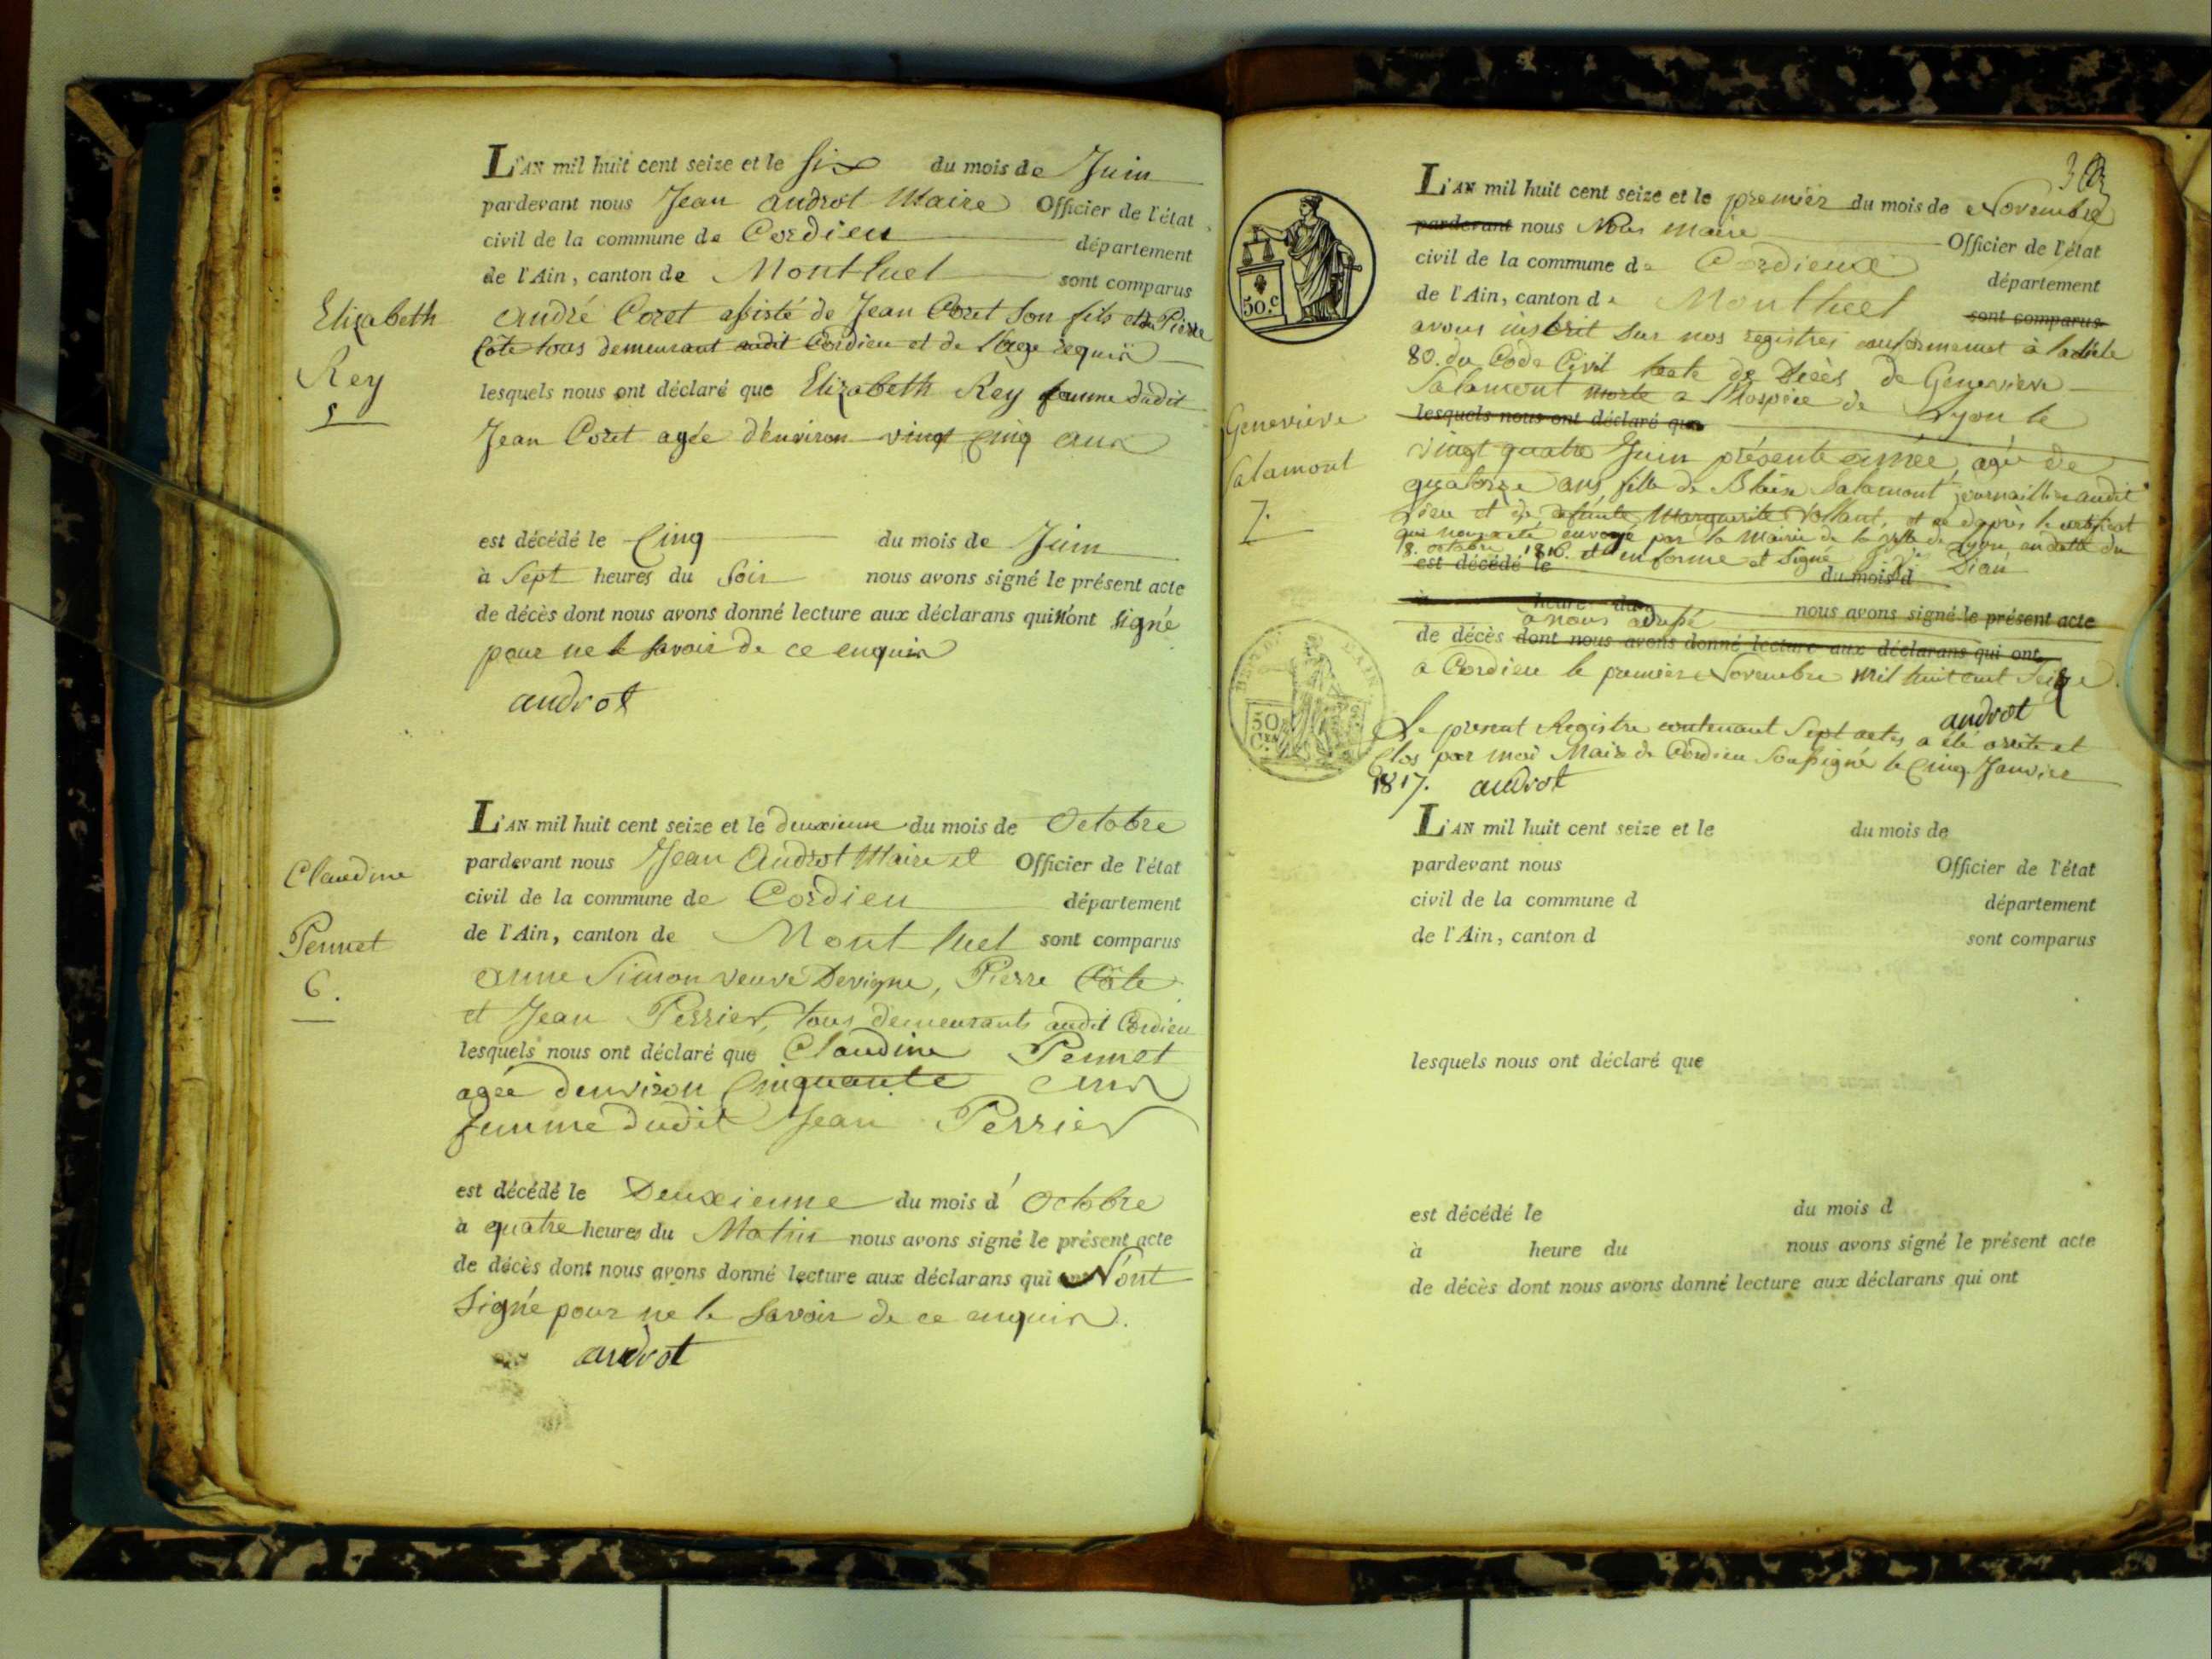 L'AN mil huit cent seize et le six du mois de Juin
pardevant nous Jean androt Maire Officier de l'état
civil de la commune de Cordieu département
de l'Ain, canton de Montluel sont comparus
André Coret assisté de Jean Coret son fils et de Pierre
Côte tous demeurant audit Cordieu et de l'âge requis
lesquels nous ont déclaré que Elizabeth Rey femme dudit
Jean Coret agée d'environ vingt cinq ans
est décédé le Cinq du mois de Juin
à Sept heures du Soir nous avons signé le présent acte
de décès dont nous avons donné lecture aux déclarans qui n'ont signé
pour ne le savoir de ce enquis
androt
Elizabeth
Rey
5
L'AN mil huit cent seize et le deuxieme du mois de Octobre
pardevant nous Jean Androt Maire et Officier de l'état
civil de la commune de Cordieu département
de l'Ain, canton de Montluel sont comparus
anne Simon veuve Devigne, Pierre Côte
et Jean Perrier, tous demeurants audit Cordieu
lesquels nous ont déclaré que Claudine Pennet
agée d'environ Cinquante ans
femme dudit Jean Perrier
est décédé le Deuxieme du mois d'Octobre
à quatre heures du Matin nous avons signé le présent acte
de décès dont nous avons donné lecture aux déclarans qui N'ont
Signé pour ne le Savoir de ce enquis.
androt
Claudine
Pennet
6.
L'AN mil huit cent seize et le premier du mois de Novembre
pardevant nous Nous Maire Officier de l'état
civil de la commune de Cordieux département
de l'Ain, canton de Montluel sont comparus
avons inscrit sur nos registres conformement à l'article
80. du Code Civil l'acte de Décès de Genevieve
Salamont morte a l'hospice de Lyon le
lesquels nous ont déclaré que
vingt quatre Juin présente année, agée de
quatorze ans, fille de Blaise Salamont journaillier audit
lieu et de defunte Marguerite Vollant, et ce d'après le certificat
qui nous a été envoyé par la Mairie de la ville de Lyon, en datte du
18. octobre 1816. et en forme et signé
est décédé le du mois d
à heure du nous avons signé le présent acte
de décès dont nous avons donné lecture aux déclarans qui ont
a Cordieu le premier Novembre Mil huit cent Seize.
androt
Le present Registre contenant Sept actes a été arrêté et
Clos par moi Maire de Cordieu Soussigné le Cinq Janvier
1817. androt
Genevieve
Salamont
7.
50.C
50
L'AN mil huit cent seize et le du mois de
pardevant nous Officier de l'état
civil de la commune d département
de l'Ain, canton d sont comparus
lesquels nous ont déclaré que
est décédé le du mois d
à heure du nous avons signé le présent acte
de décès dont nous avons donné lecture aux déclarans qui ont